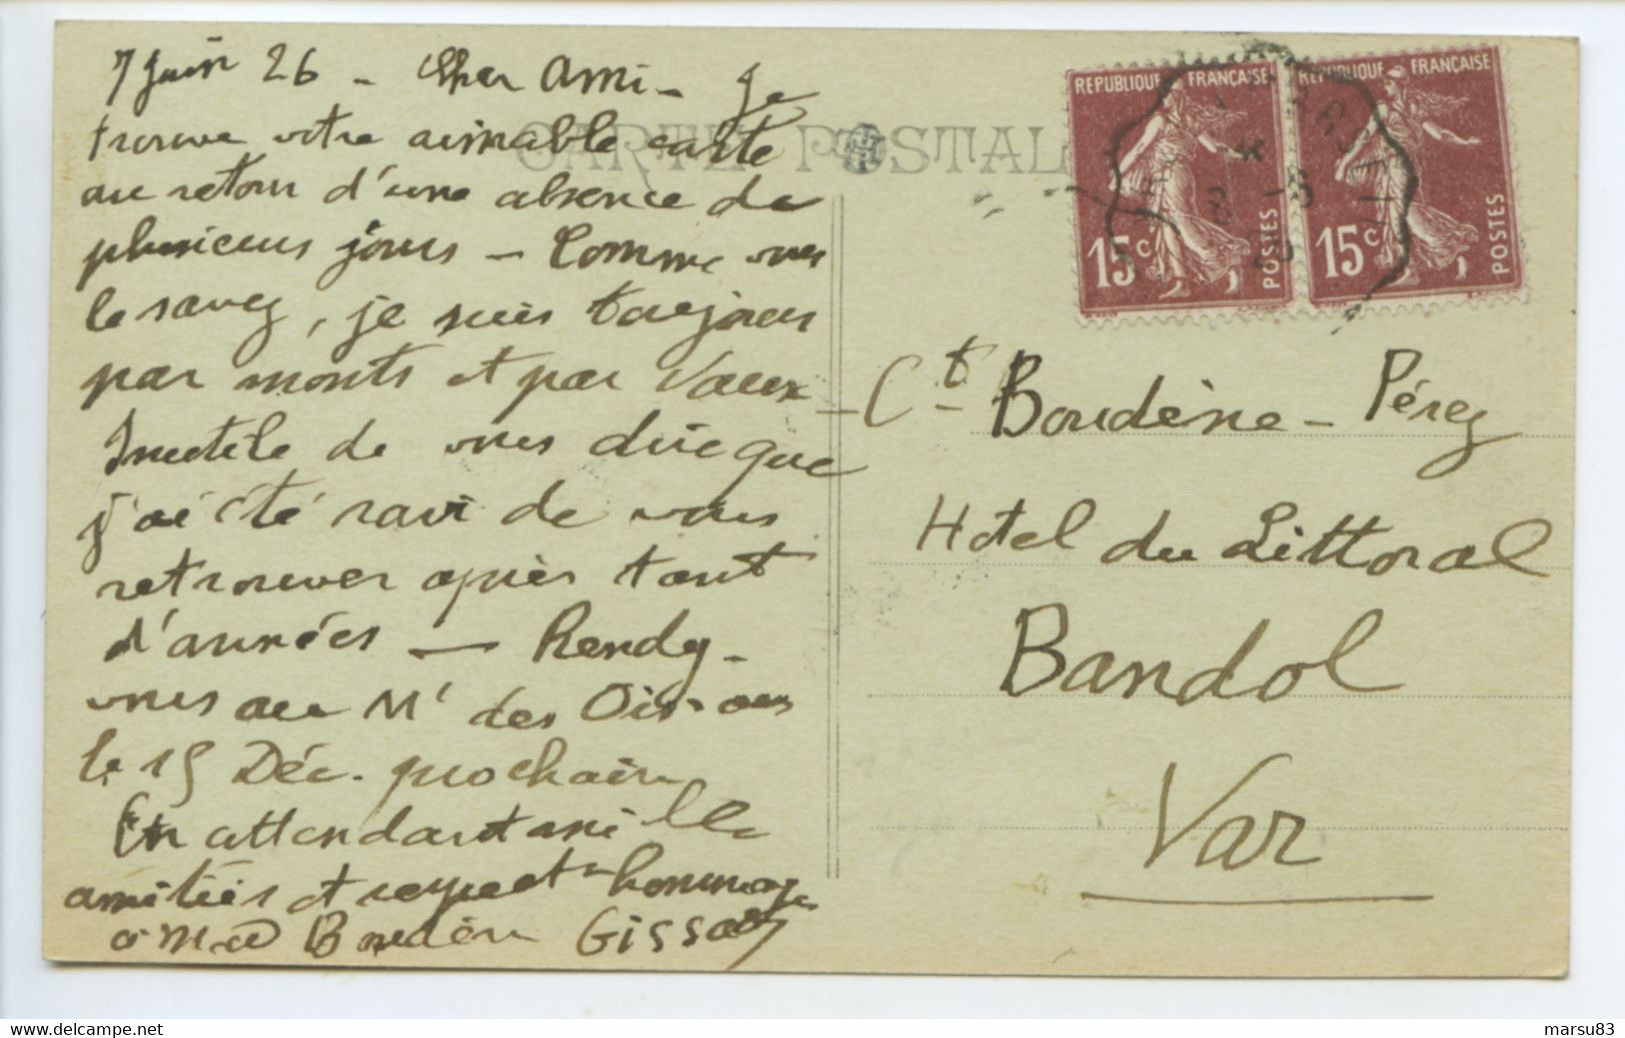 7 Juin 26 - Cher Ami - Je
trouve votre aimable carte
au retour d'une absence de
plusieurs jours - Comme vous
le savez, je suis toujours
par monts et par Vaux -
Inutile de vous dire que
j'ai été ravi de vous
retrouver après tant
d'années — Rendez-
vous au Mt des Oiseaux
le 15 Déc. prochain
En attendant mille
amitiés et respect. hommages
à Mad Boudène
CARTE POSTALE
REPUBLIQUE FRANÇAISE
15c POSTES
REPUBLIQUE FRANÇAISE
15c POSTES
Ct Boudène - Pérez
Hotel du Littoral
Bandol
Var
www.delcampe.net
marsu83